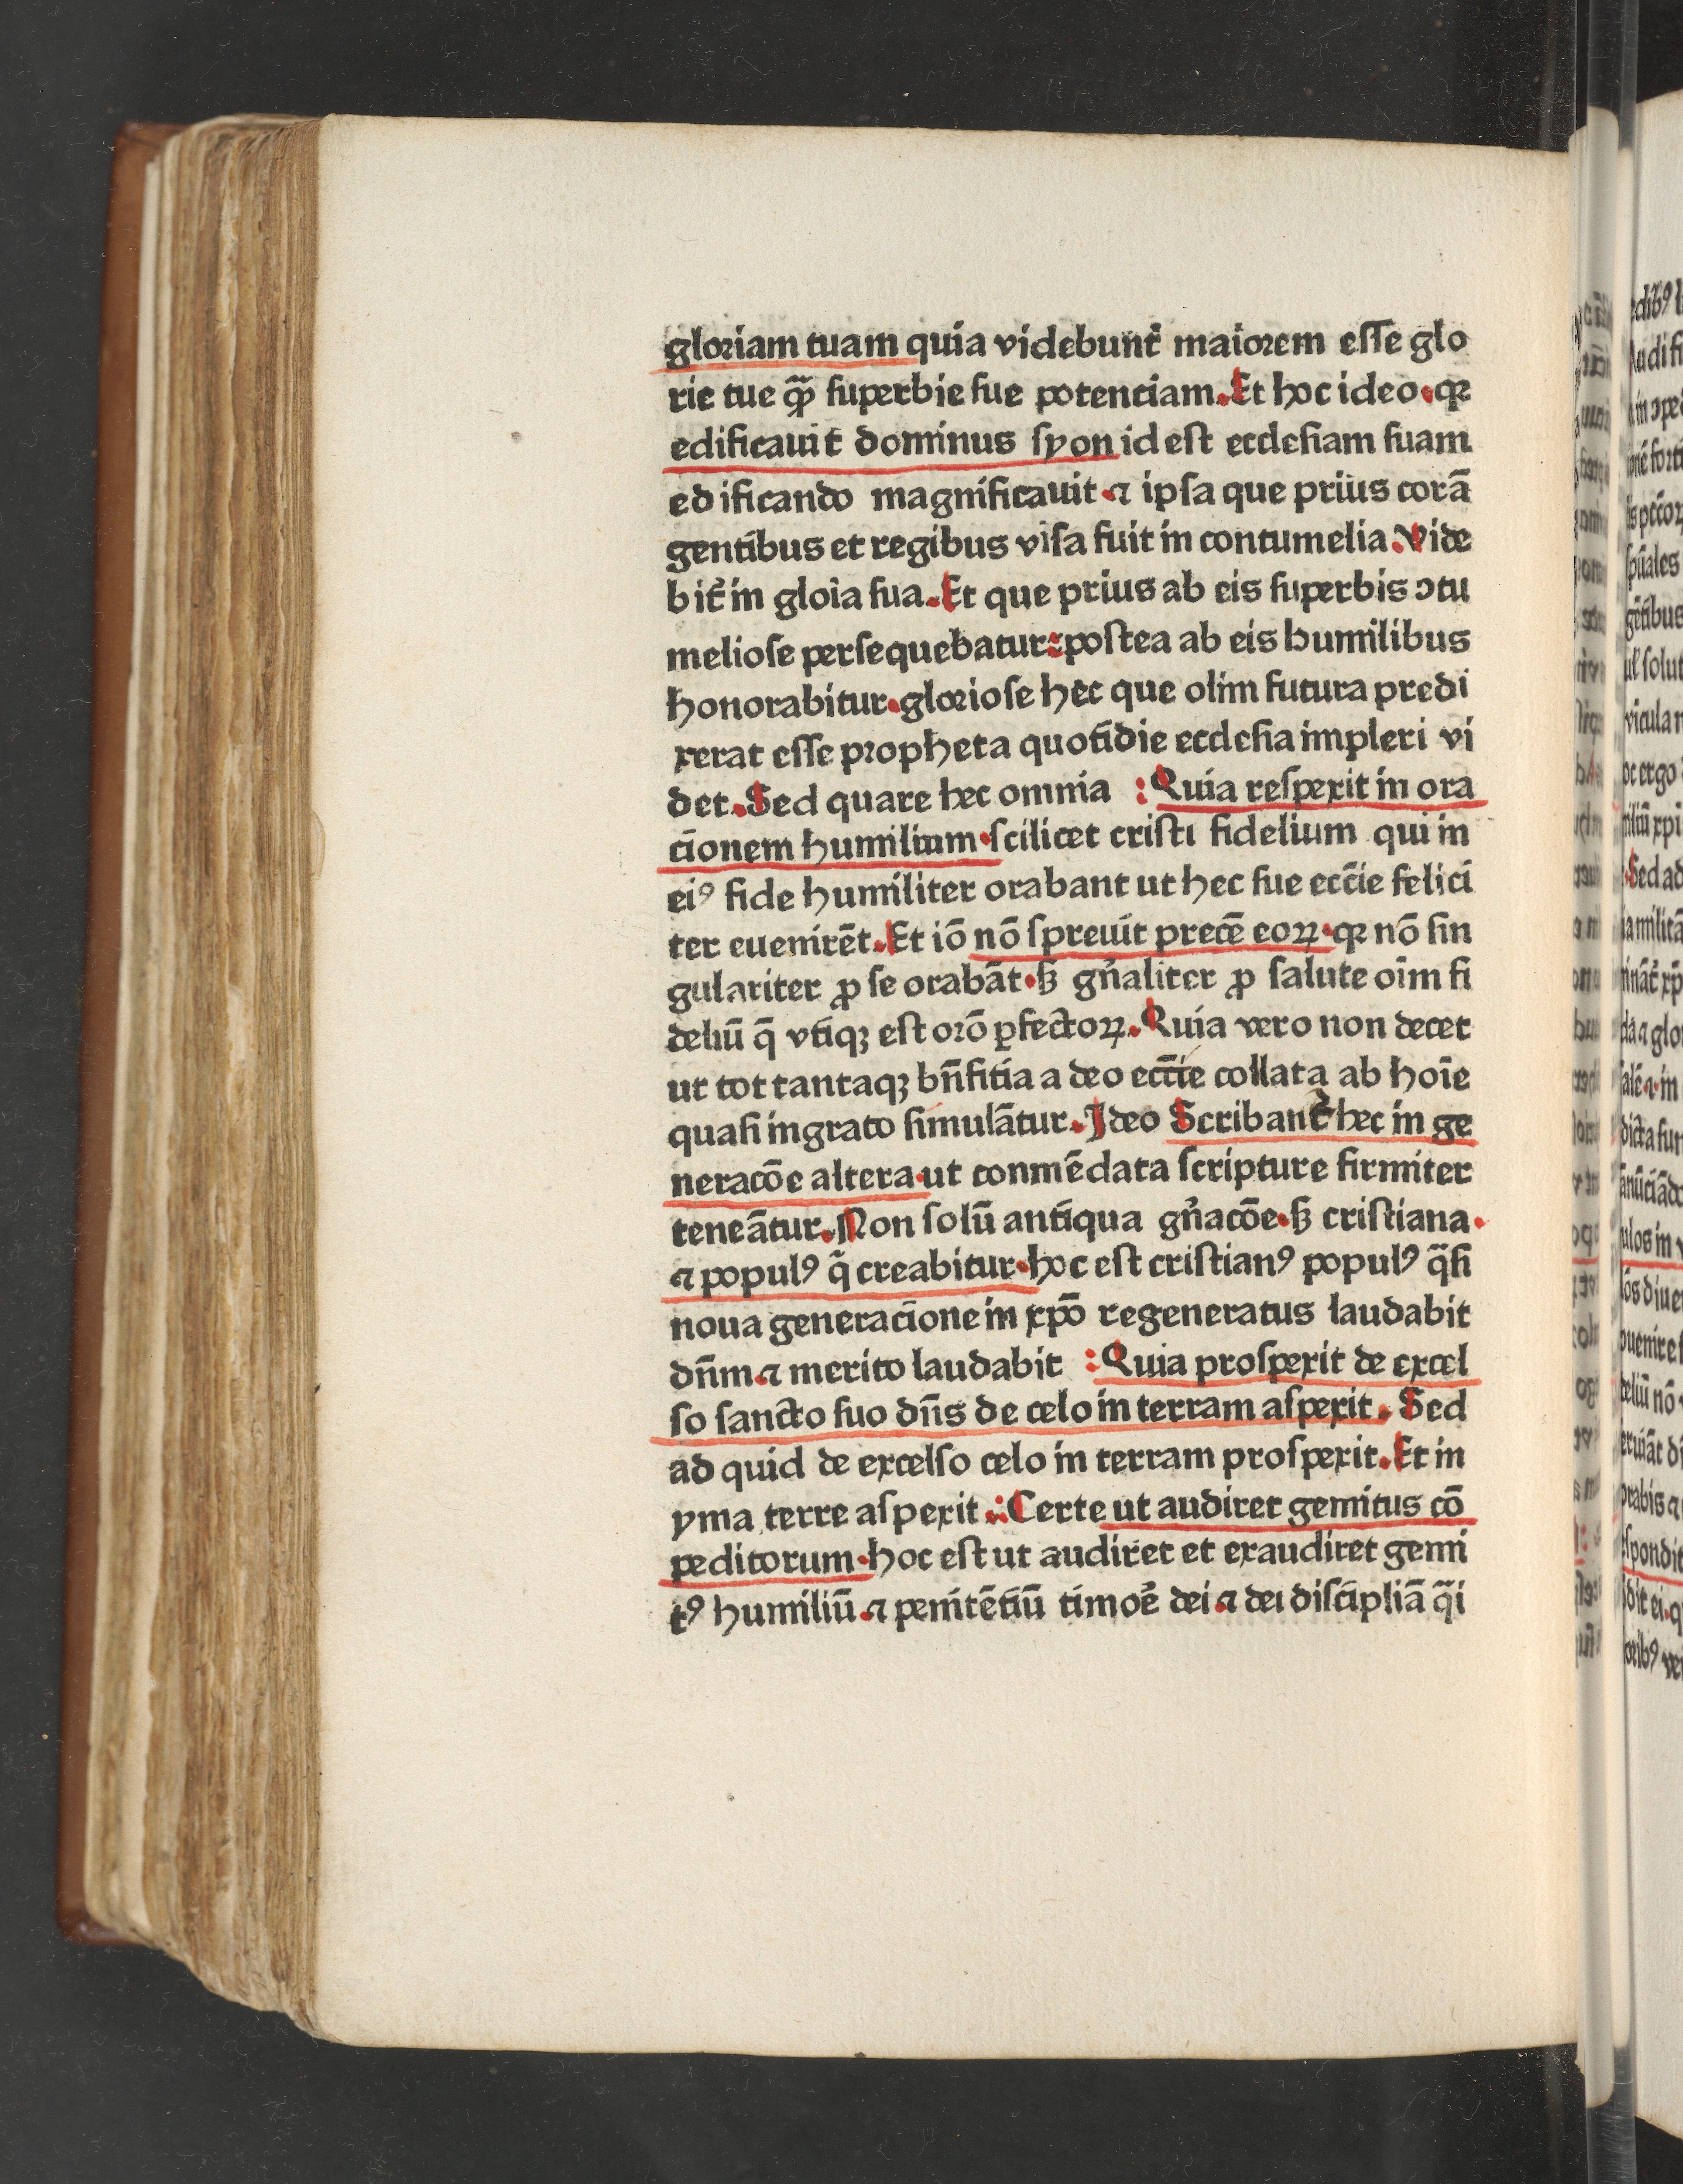 gloriam tuam quia videbunt᷑ maiorem esse glo
rie tue qꝫ̃ superbie sue potenciam. Et hoc ideo · qꝛ
edificauit dominus syon id est ecclesiam suam
edificando magnificauit · ⁊ ipsa que prius corã
gentibus et regibus visa fuit in contumelia. Vide
bit᷑ in gloĩa sua. Et que prius ab eis superbis ↄtu
meliose persequebatur : postea ab eis humilibus
honorabitur · gloriose hec que olim futura predi
xerat esse propheta quotidie ecclesia impleri vi
det. Sed quare hec omnia : Quia respexit in ora
cionem humilium · scilicet cristi fidelium qui in
eiꝰ fide humiliter orabant ut hec sue ecc̃ie felici
ter euenirẽt. Et iõ nõ spreuit precẽ eoꝝ · qꝛ nõ sin
gulariter ꝓ se orabãt · sꝫ gñaliter ꝓ salute oĩm fi
deliũ q̃ vtiqꝫ est orõ ꝑfectoꝝ. Quia vero non decet
ut tot tantaqꝫ bñfitia a deo ecc̃ie collata ab hoĩe
quasi ingrato simulãtur. Ideo Scribant᷑ hec in ge
neracõe altera · ut conmẽdata scripture firmiter
teneãtur. Non solũ antiqua gñacõe · sꝫ cristiana ·
⁊ populꝰ q̃ creabitur · hoc est cristianꝰ populꝰ q̃si
noua generacione in xp̃o regeneratus laudabit
dñm · ⁊ merito laudabit : Quia prospexit de excel
so sancto suo dñs de celo in terram aspexit. Sed
ad quid de excelso celo in terram prospexit. Et in
yma terre aspexit : Certe ut audiret gemitus cõ
peditorum · hoc est ut audiret et exaudiret gemi
tꝰ humiliũ · ⁊ penitẽtiũ timoẽ dei · ⁊ dei discipliã q̃i